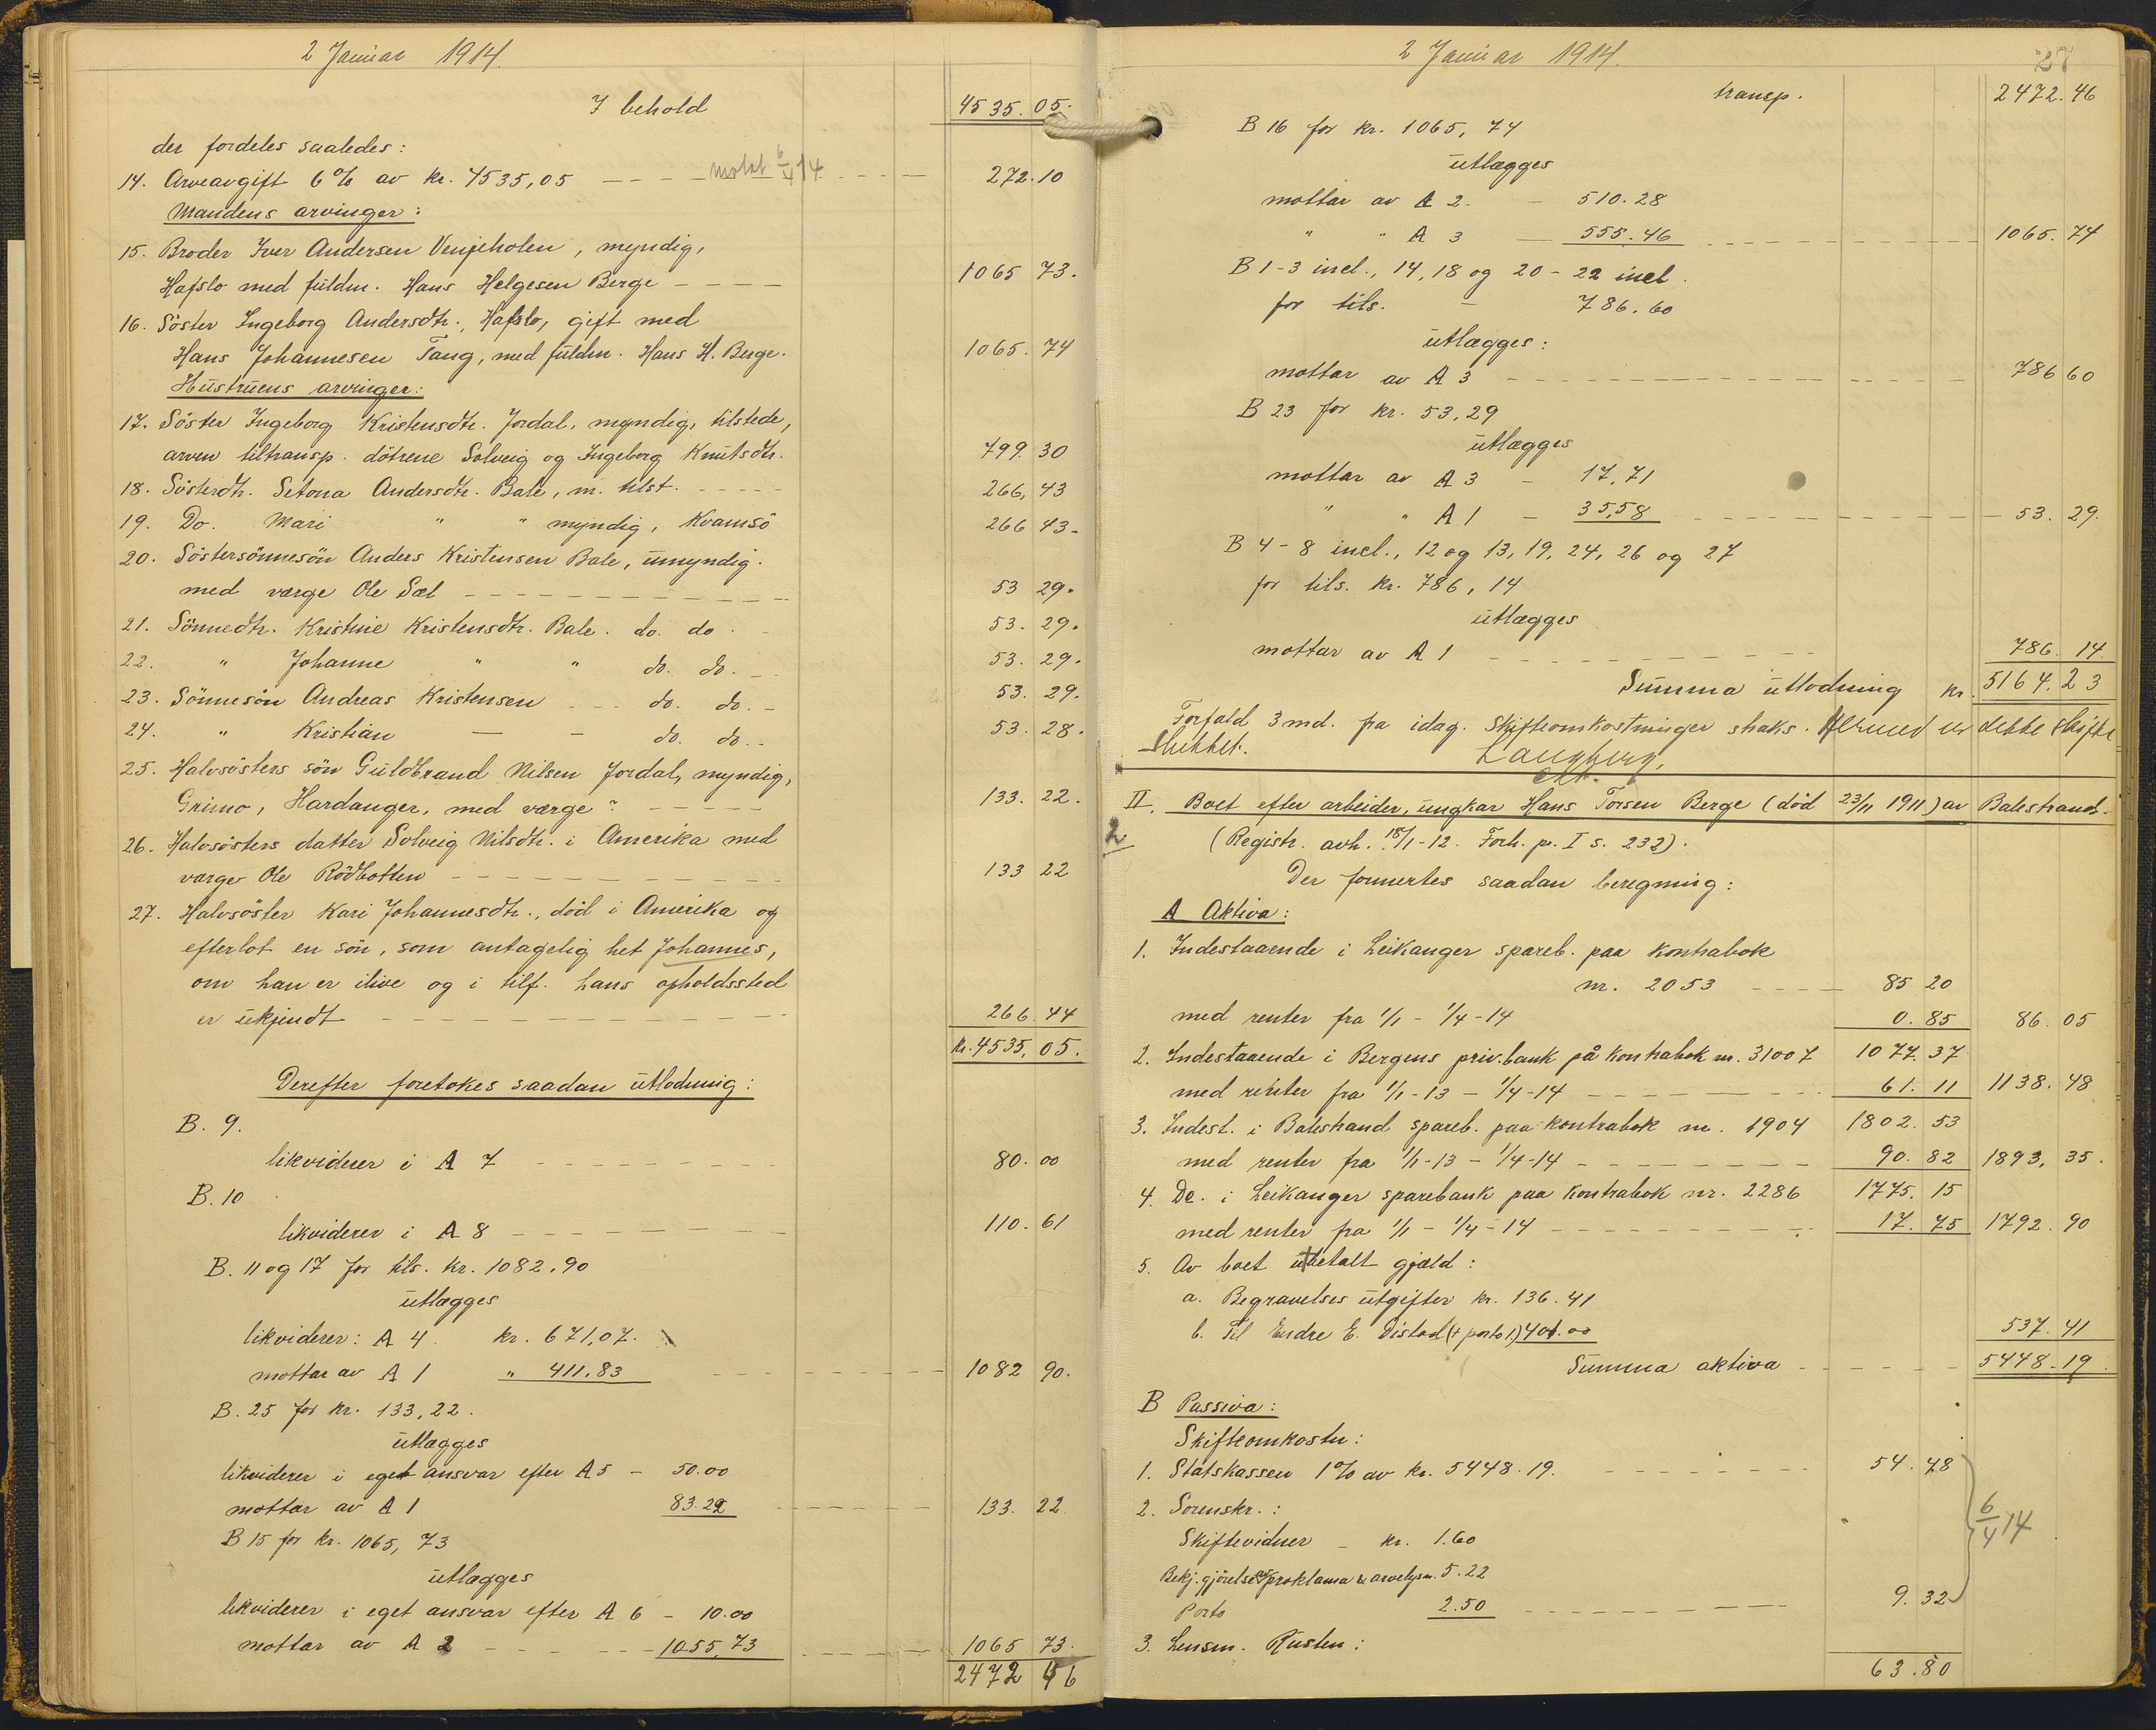 2 Januar 1914.
I behold 4535.05.
der fordeles saaledes:
14. Arveavgift 6% av kr. 4535,05 - - - motat 6/4 14 - - - 272.10
Mandens arvinger:
15. Broder Iver Andersen Venjeholen, myndig,
Hafslo med fuldm. Hans Helgesen Berge - - - - 1065 73.
16. Söster Ingeborg Andersdtr., Hafslo, gift med
Hans Johannesen Tang, med fuldm. Hans H. Berge. 1065.74
Hustruens arvinger:
17. Söster Ingeborg Kristensdtr. Jordal, myndig, tilstede,
arven tiltransp. dötrene Solveig og Ingeborg Knutsdtr. 799.30
18. Sösterdtr. Setona Andersdtr. Bale, m. tilst. - - - - 266,43
19. Do. Mari " " myndig, Kvamsö 266 43-
20. Söstersönnesön Anders Kristensen Bale, umyndig.
med værge Ole Sæl - - - - - - - - - - 53 29.
21. Sönnedtr. Kristine Kristensdtr. Bale. do. do. - 53.29.
22. " Johanne " " do. do. - 53.29.
23. Sönnesön Andreas Kristensen - - - do. do. - 53.29.
24. " Kristian — - do. do. - 53.28.
25. Halvsösters sön Guldbrand Nilsen Jordal, myndig,
Grimo, Hardanger, med værge ? - - - - - 133.22.
26. Halvsösters datter Solveig Nilsdtr. i Amerika med
værge Ole Rödbotten - - - - - - - - - - 133 22
27. Halvsöster Kari Johannesdtr., död i Amerika og
efterlot en sön, som antagelig het Johannes,
om han er ilive og i tilf. hans opholdssted
er ukjendt - - - - - - - - - - - 266.44
Kr. 4535,05.
Derefter foretokes saadan utlodning:
B. 9.
likviderer i A 7 - - - - - - - 80.00
B. 10
likviderer i A 8 - - - - - - - 110.61
B. 11 og 17 for tils. kr. 1082.90
utlægges
likviderer: A 4. kr. 671,07.
mottar av A 1 " 411.83 - - - - - - - 1082 90.
B. 25 for kr. 133,22.
utlægges
likviderer i eget ansvar efter A 5 - 50.00
mottar av A 1 83.22 - - - - - 133.22
B 15 for kr. 1065,73
utlægges
likviderer i eget ansvar efter A 6 - 10.00
mottar av A 2 - - - - - 1055,73 - - - - - 1065 73.
2472 46
2 Januar 1914. 27
transp. 2472.46
B 16 for kr. 1065,74
utlægges
mottar av A 2. - 510.28
" " A 3 — 555.46 - - - - - - - 1065.74
B 1-3 incl., 14, 18 og 20-22 incl.
for tils. - 786.60
utlægges:
mottar av A 3 - - - - - - - - - - - 786 60
B 23 for kr. 53,29
utlægges
mottar av A 3 - 17,71
" " A 1 - 35,58 - - - - - - - 53.29.
B 4-8 incl., 12 og 13, 19, 24, 26 og 27
for tils. kr. 786,14
utlægges
mottar av A 1 - - - - - - - - - - 786.14.
Summa utlodning kr. 5164.23
Forfald 3 md. fra idag. Skifteomkostninger straks. Hermed er dette skifte
sluttet.
Langberg,
II. Boet efter arbeider, ungkar Hans Torsen Berge (död 23/11 1911) av Balestrand.
2
(Registr. avh. 18/1-12. Forh. pr. I s. 232).
Der formertes saadan beregning:
A Aktiva:
1. Indestaaende i Leikanger spareb. paa kontrabok
nr. 2053 - - - - 85 20
med renter fra 1/1 - 1/4-14 0.85 86.05
2. Indestaaende i Bergens priv.bank på kontrabok nr. 31007 1077.37
med renter fra 1/1-13 - 1/4-14 - - - - - - - 61.11 1138.48
3. Indest. i Balestrand spareb. paa kontrabok nr. 1904 1802.53
med renter fra 1/1-13 - 1/4-14 - - - - - - - 90.82 1893,35.
4. Do. i Leikanger sparebank paa kontrabok nr. 2286 1775.15
med renter fra 1/1 - 1/4-14 - - - - - - - 17.75 1792.90
5. Av boet utbetalt gjæld:
a. Begravelses utgifter kr. 136.41
b. Til Endre E. Distad (+ porto 1.) 401.00 537.41
Summa aktiva - - - - - 5448.19.
B Passiva:
Skifteomkostn:
1. Statskassen 1% av kr. 5448.19. - - - - - - 54.48
2. Sorenskr.:
Skiftevidner - kr. 1.60 6/4 14
Bekj.gjörelse av proklama & arvelysn. 5.22
Porto 2.50 - - - - - - - 9.32
3. Lensm. Rusten:
63.80